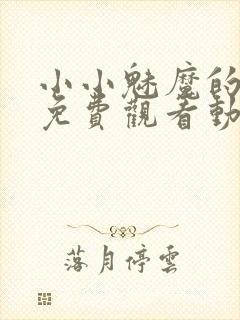 小小魅魔的
免費觀看動
落月停雲